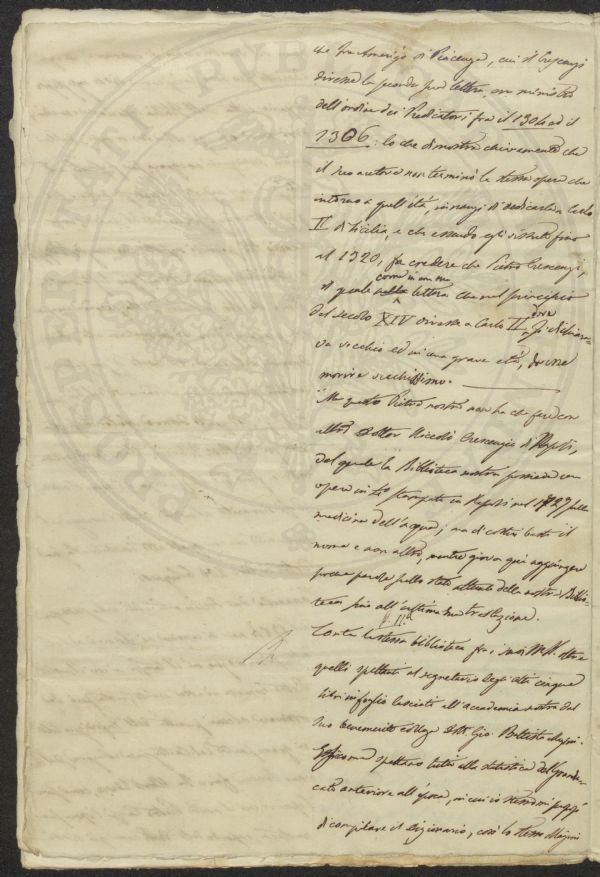 che fra Amerigo di Piacenza, cui il Crescenzi
diresse la seconda sua lettera, era ministro
dell'ordine dei Predicatori fra il 1304 ad il
1306: lo che dimostra chiaramente che
il suo autore non terminò la stessa opera che
intorno a quell'età, innanzi di dedicarla a Carlo
II di Sicilia, e che essendo egli vissuto fino
al 1320, fa credere che Pietro Crescenzi,
il quale come in una sua lettera che nel principio
del secolo XIV diresse a Carlo II, ove si dichiara-
va vecchio ed in una grave età, dovesse
morire vecchissimo.
Ma questo Pietro nostro non ha che fare con
altro Dottor Niccolò Crescenzio di Napoli,
del quale la Biblioteca nostra possiede un
opera in 4º stampata in Napoli nel 1727 sulla
medicina dell'acqua; ma di costui basti il
nome e non altro, mentre giova qui aggiungere
poche parole sullo stato attuale della nostra Biblio-
teca fino all'ultima sua traslazione.
Conta la stessa biblioteca fra i suoi M.S. oltre
quelli spettanti al segretario degli atti cinque
libri in foglio lasciati all'accademia nostra dal
suo benemerito collega Dott. Gio. Battista
spettano tutti alla statistica del Grandu-
cato anteriore all'epoca, in cui io
di compilare il Dizionario, così lo stesso